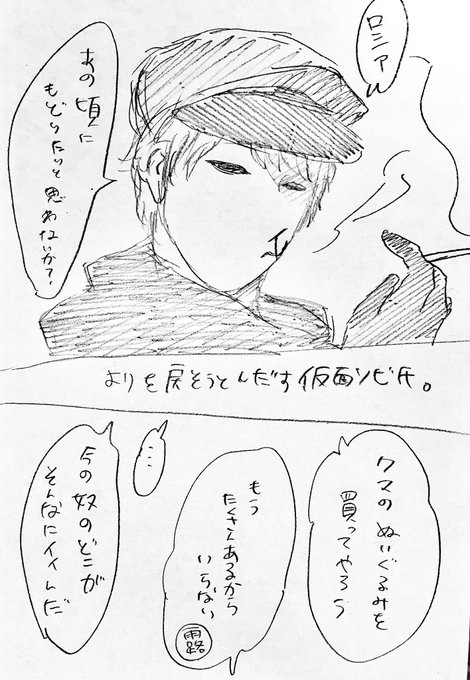 ロシア
あの頃に
もどりたいと思わないか?
よりを戻そうとしだす仮面ソビ氏。
クマのぬいぐるみを
買ってやろう
もう
たくさんあるから
いらない
露
…
今の奴のどこが
そんなにイイんだ